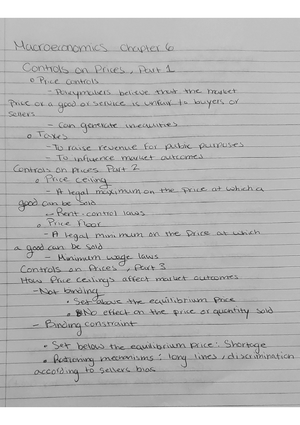 Macroeconomics Chapter 6
Controls on Prices, Part 1
○ Price controls
- Policymakers believe that the market
price or a good or service is unfair to buyers or
sellers
- can generate inequalities
○ Taxes
- To raise revenue for public purposes
- To influence market outcomes
Controls on prices, Part 2
○ Price ceiling
- A legal maximum on the price at which a
good can be sold
- Rent-control laws
○ Price Floor
- A legal minimum on the price at which
a good can be sold
- Minimum wage laws
Controls on Prices, Part 3
How Price ceilings affect market outcomes
- Not binding
• Set above the equilibrium price
• No effect on the price or quantity sold
- Binding constraint
• Set below the equilibrium price: Shortage
• Rationing mechanisms: long lines, discrimination
according to sellers bias